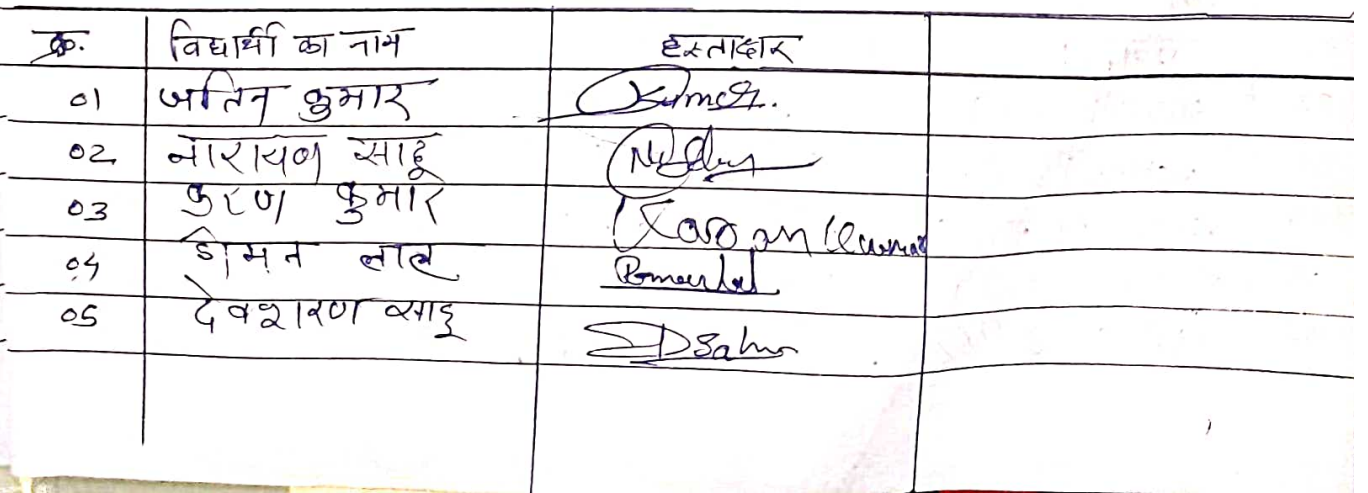 क्र. विद्यार्थी का नाम हस्ताक्षर
01 जतिन कुमार Kumar.
02 नारायण साहू
03 करण कुमार Karan Kumar
04 लाल
05 देवशरण साहू D Sahu